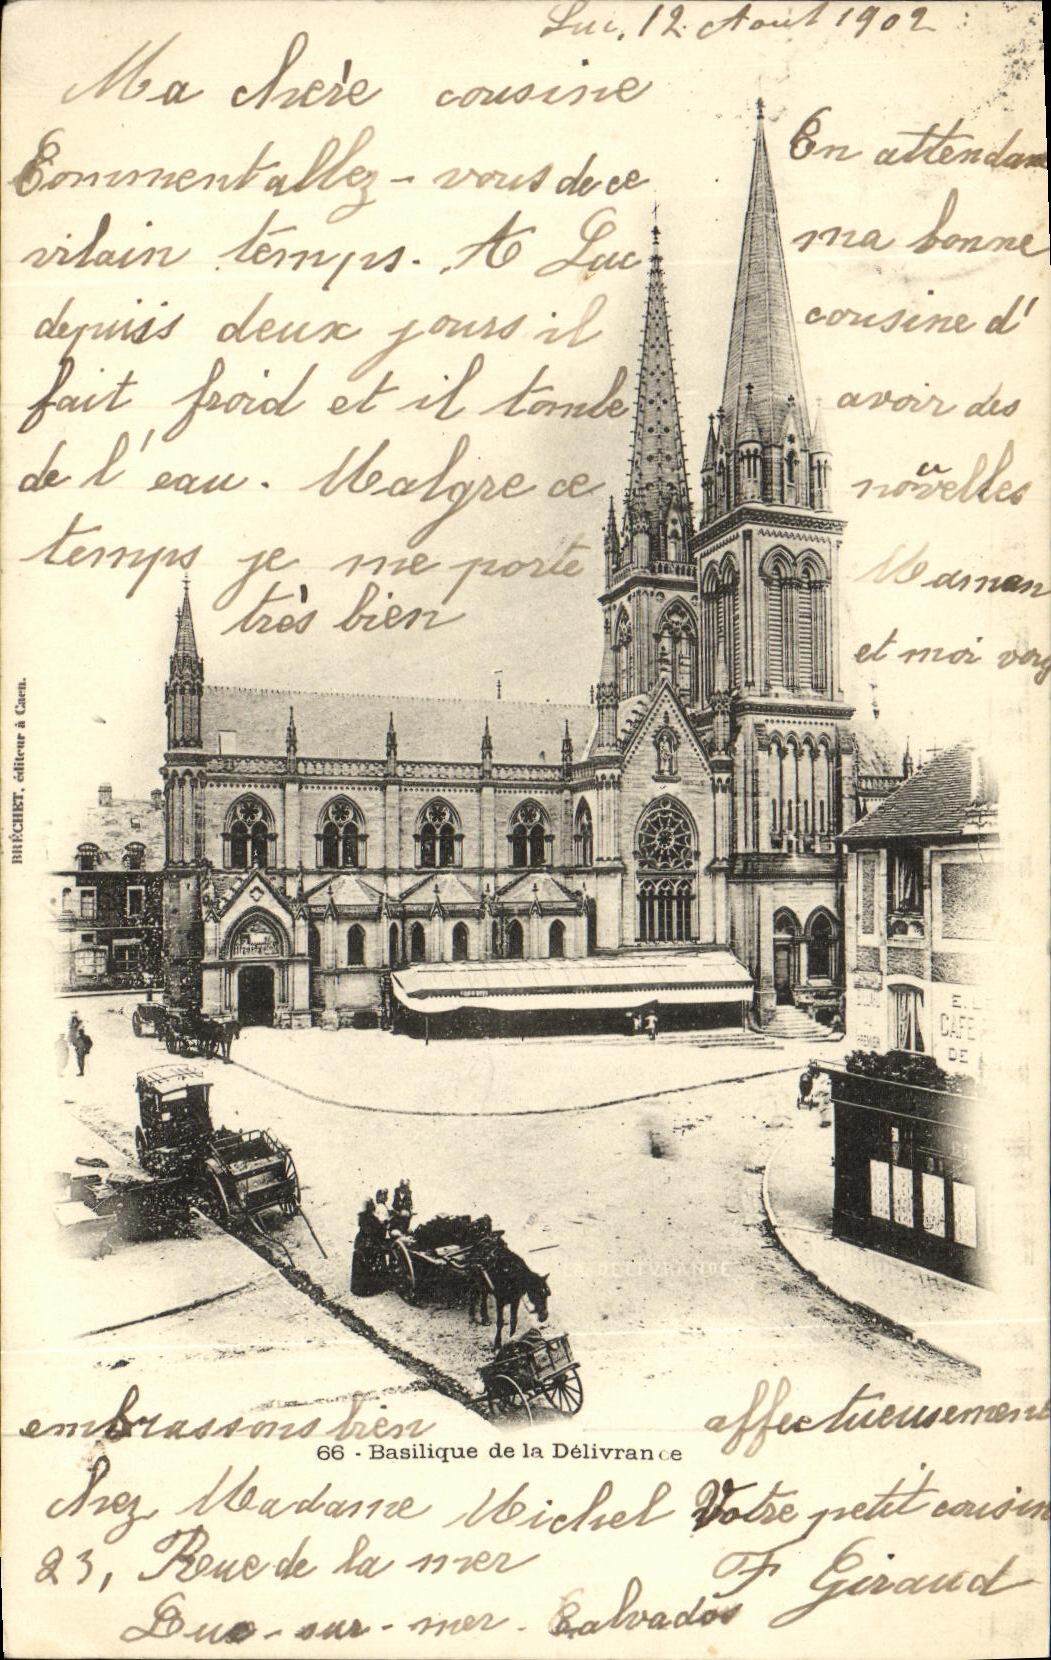 Luc, 12 Aout 1902
Ma chère cousine
Comment allez-vous de ce
vilain temps. A Luc
depuis deux jours il
fait froid et il tombe
de l'eau. Malgre ce
temps je me porte
très bien
En attendant
ma bonne
cousine d'
avoir des
nouvelles
Maman
et moi vous
embrassons bien affectueusement
BRÉCHET, éditeur à Caen.
CAFÉ
DE
LA DELIVRANDE
66 - Basilique de la Délivrance
chez Madame Michel
23, Rue de la mer
Luc-sur-mer. Calvados
Votre petit cousin
F Giraud